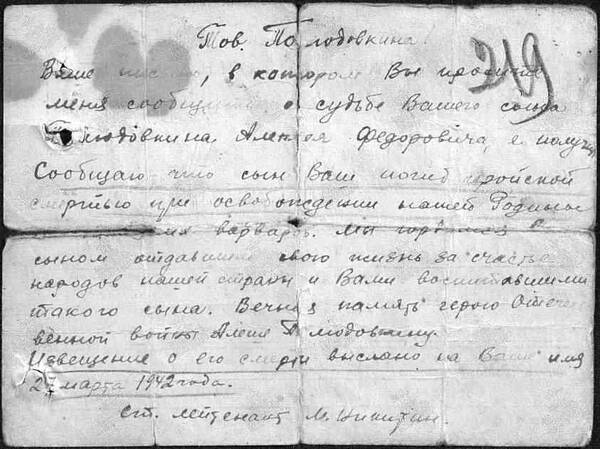 Тов. Полюдовкина
219
Ваше письмо, в котором Вы просите
меня сообщить о судьбе Вашего сына
Полюдовкина Алексея Федоровича, я получил
Сообщаю что сын Ваш погиб геройской
смертью при освобождении нашей Родины
варваров. Мы гордимся
сыном отдавшим свою жизнь за счастье
народов нашей страны и Вами воспитавшими
такого сына. Вечная память герою Отечест
венной войны Алеше Полюдовкину.
Извещение о его смерти выслано на Ваше имя
27 марта 1942 года.
Ст. лейтенант М. Никитин.